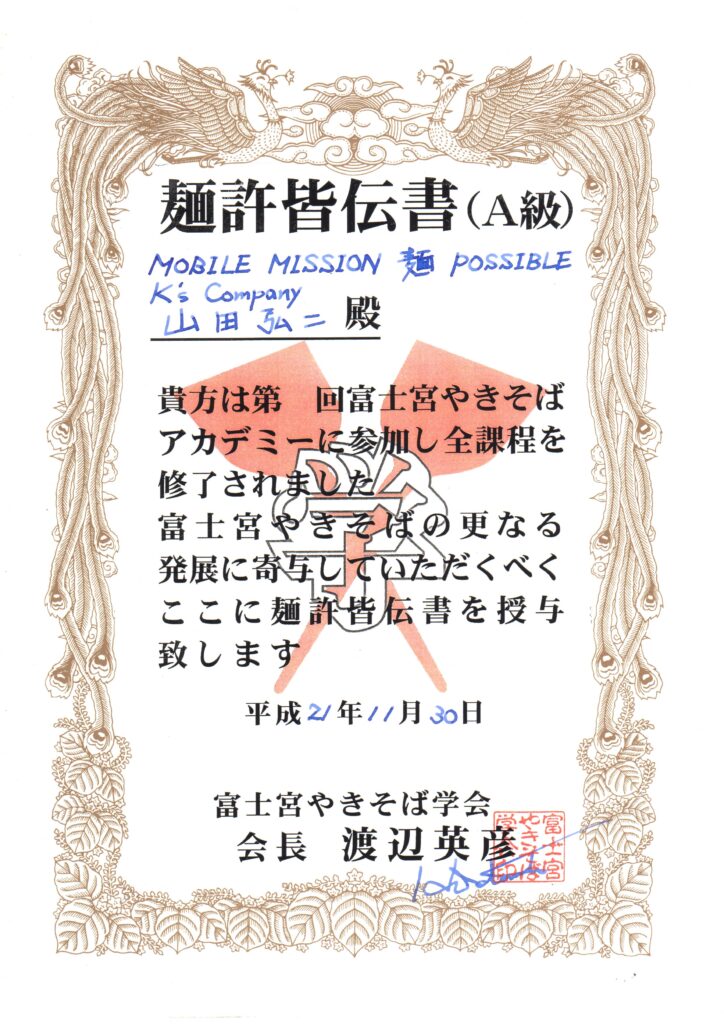 麺許皆伝書(A級)
MOBILE MISSION 麺 POSSIBLE
K's Company
山田弘二 殿
貴方は第 回富士宮やきそば
アカデミーに参加し全課程を
修了されました
富士宮やきそばの更なる
発展に寄与していただくべく
ここに麺許皆伝書を授与
致します
平成21年11月30日
富士宮やきそば学会
会長 渡辺英彦
富士宮
やきそば
学会印
学